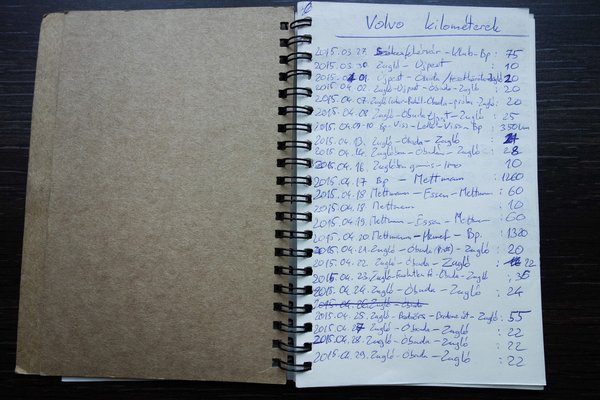 Volvo kilométerek
2015.03.27. Székesfehérvár - Bp : 75
2015.03.30 Zugló - Újpest : 10
2015.04.01 Újpest - Óbuda : 20
2015.04.02. Zugló - Újpest - Óbuda - Zugló : 20
2015.04.07. Zugló Óbuda Zugló : 20
2015.04.08 Zugló - Óbuda Zugló : 25
2015.04.09-10 Bp - Viss - Viss - Bp : 350 km
2015.04.13. Zugló - Óbuda - Zugló :
2015.04.14. Óbuda - Zugló :
2015.04.16. 10
2015.04.17 Bp - Mettmann : 1260
2015.04.18 Mettmann - Essen - Mettmann : 60
2015.04.18 Mettmann : 10
2015.04.19. Mettmann - Essen - Mettmann : 60
2015.04.20. Mettmann - Bp. : 1320
2015.04.21. Zugló - Óbuda - Zugló : 20
2015.04.22. Zugló - Óbuda - Zugló : 22
2015.04.23. Zugló Óbuda - Zugló : 35
2015.04.24. Zugló - Óbuda - Zugló : 24
2015.04.26 Zugló - Óbuda
2015.04.25. Zugló - Zugló : 55
2015.04.27 Zugló - Óbuda - Zugló : 22
2015.04.28. Zugló - Óbuda - Zugló : 22
2015.04.29. Zugló - Óbuda - Zugló : 22